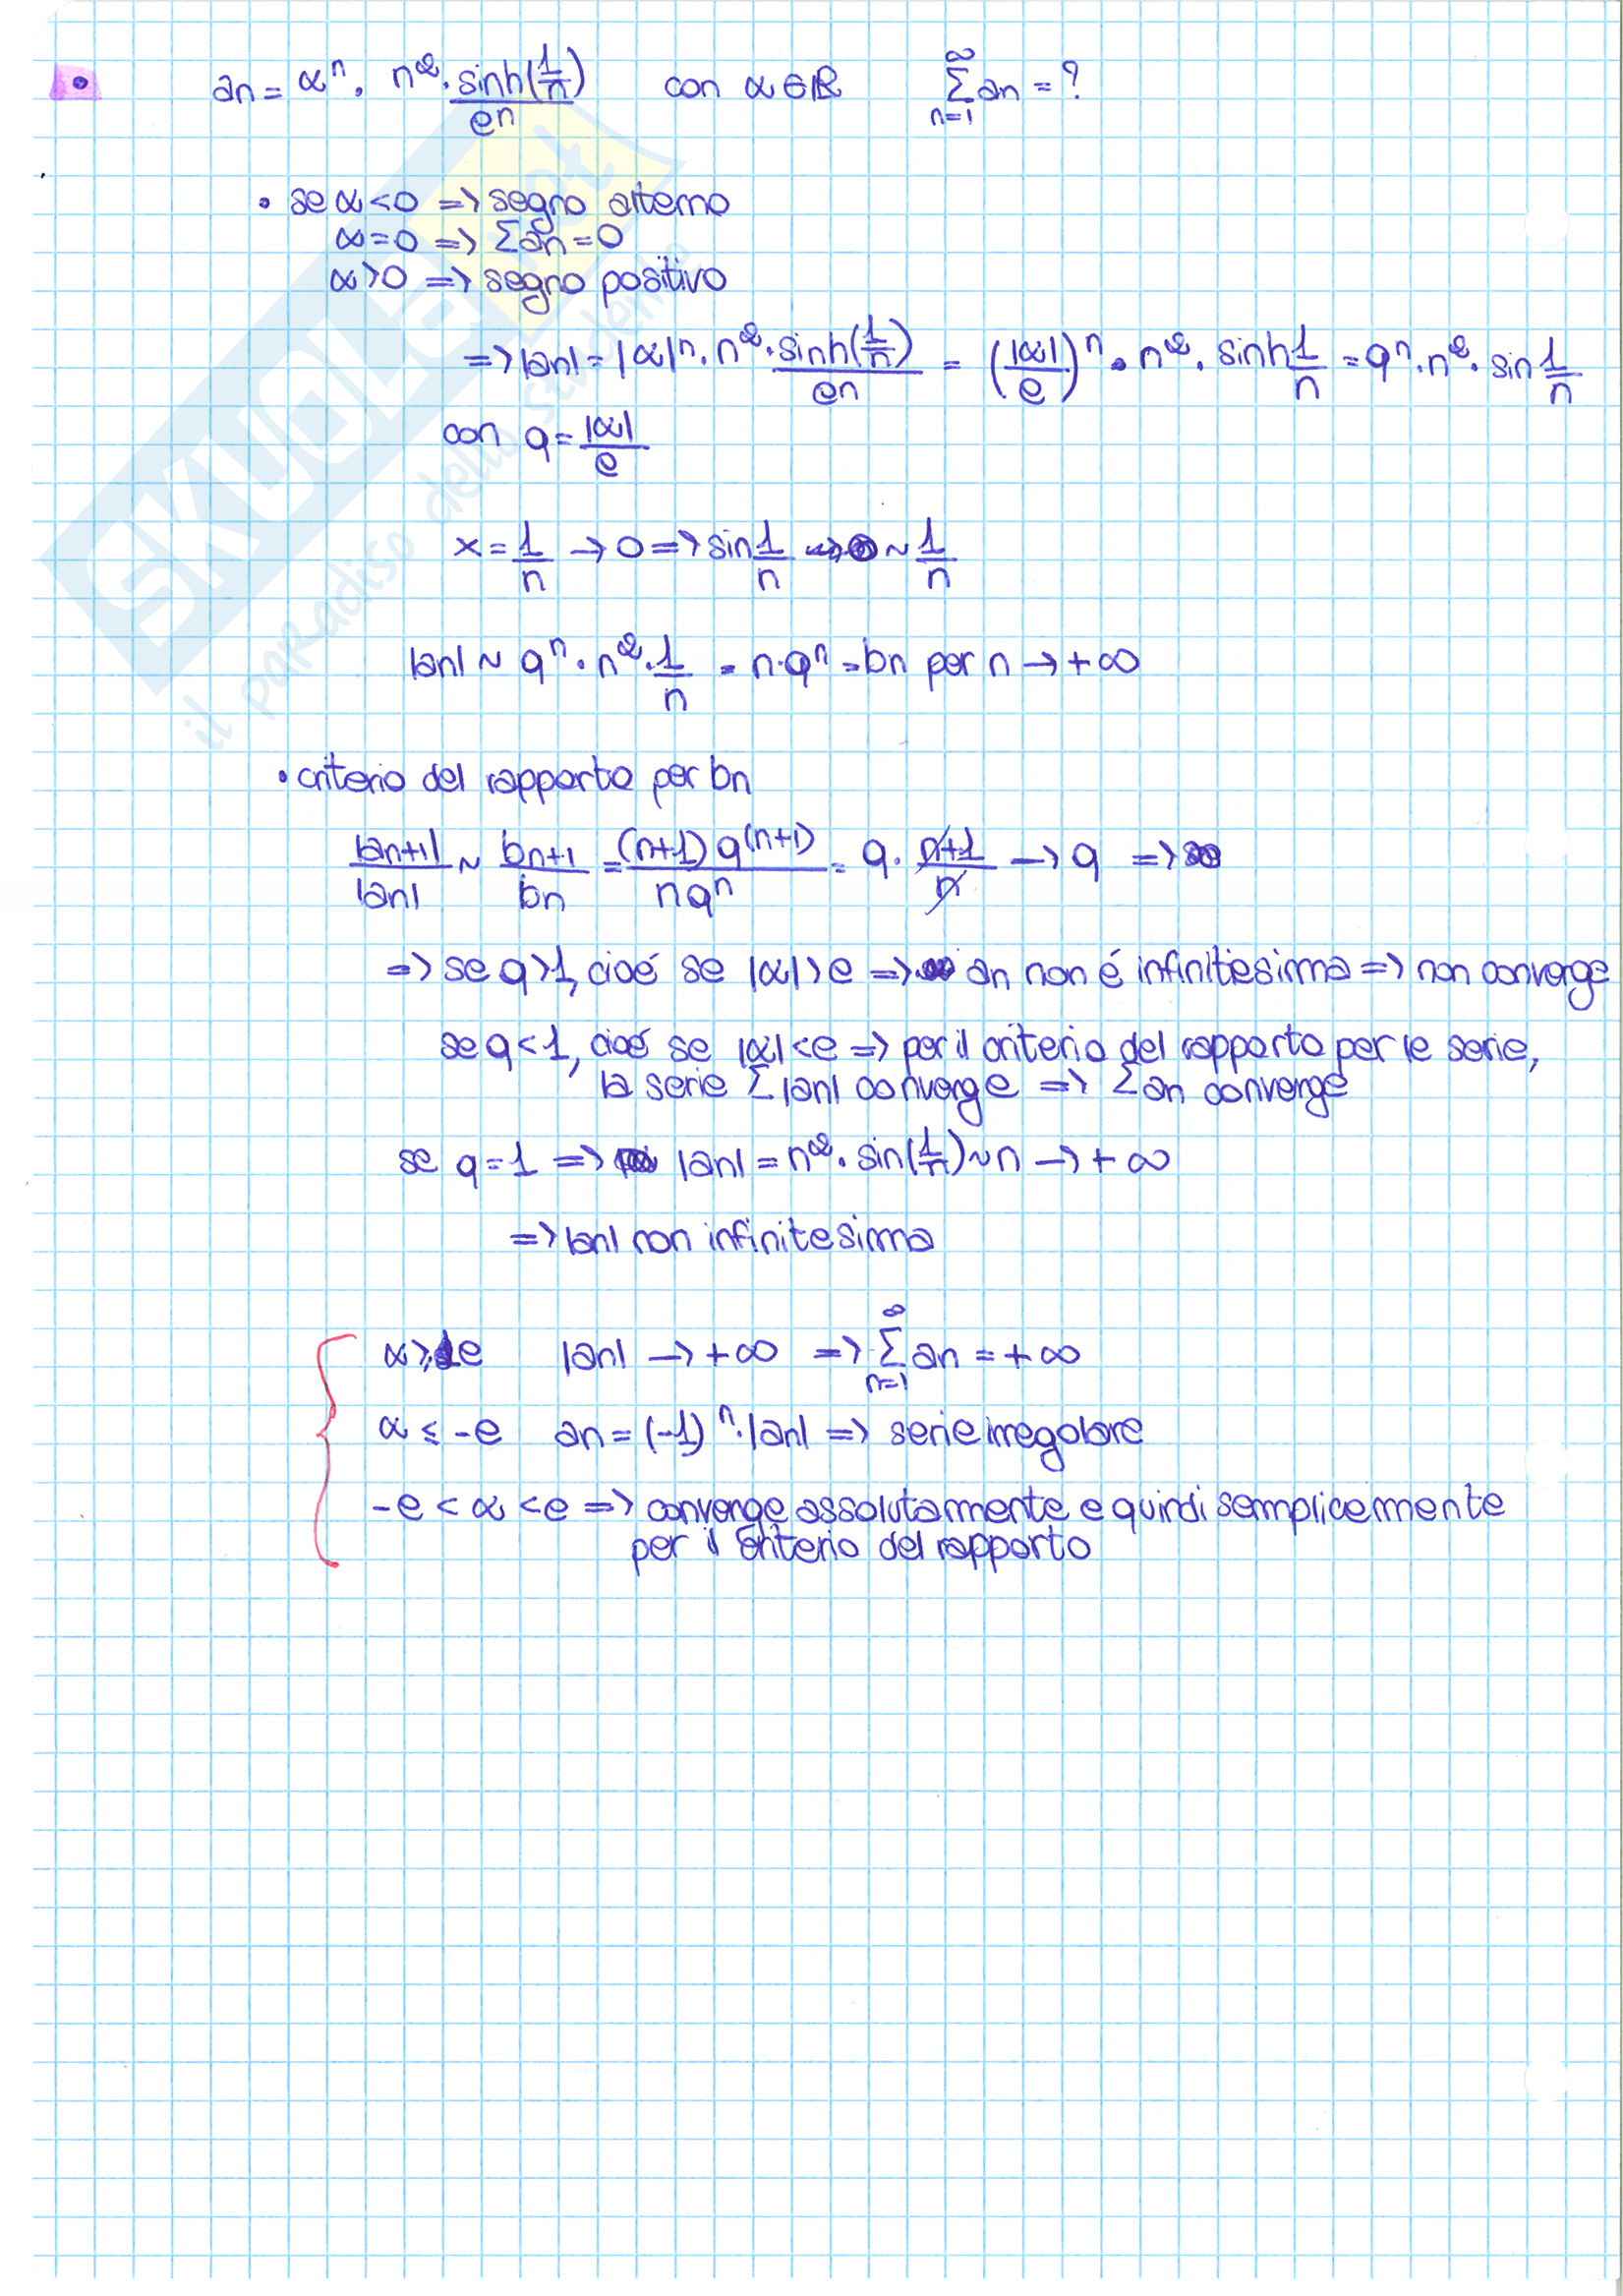 an = αⁿ · n² · sinh(1/n)/eⁿ con α∈ℝ ∞Σn=1 an = ?
• se α<0 => segno alterno
α=0 => Σan=0
α>0 => segno positivo
=> |an| = |α|ⁿ · n² · sinh(1/n)/eⁿ = (|α|/e)ⁿ · n² · sinh 1/n = qⁿ · n² · sin 1/n
con q = |α|/e
x = 1/n → 0 => sin 1/n ~ 1/n
|an| ~ qⁿ · n² · 1/n = n·qⁿ = bn per n → +∞
• criterio del rapporto per bn
|an+1|/|an| ~ bn+1/bn = (n+1) q^(n+1)/nqⁿ = q · n+1/n → q =>
=> se q>1, cioé se |α|>e => an non é infinitesima => non converge
se q<1, cioé se |α|<e => per il criterio del rapporto per le serie,
la serie Σ|an| converge => Σan converge
se q=1 => |an| = n² · sin(1/n) ~ n → +∞
=> |an| non infinitesima
α ≥ e |an| → +∞ => ∞Σn=1 an = +∞
α ≤ -e an = (-1)ⁿ · |an| => serie irregolare
-e < α < e => converge assolutamente e quindi semplicemente
per il criterio del rapporto
SKUOLA.net
il paradiso dello studente